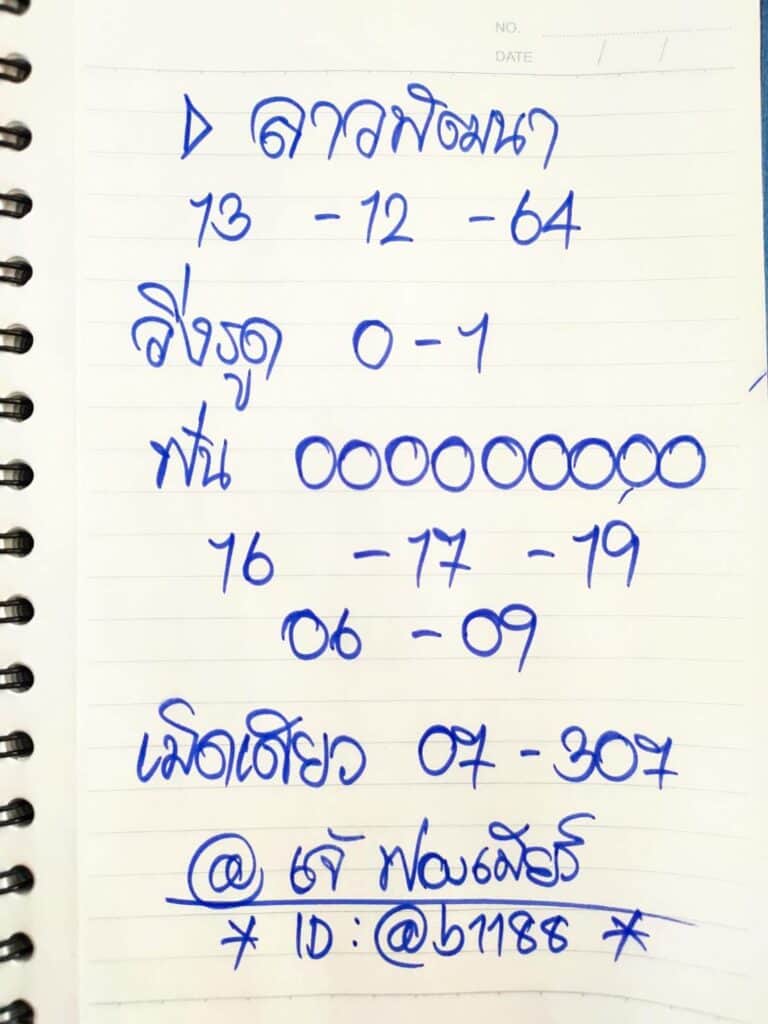 NO.
DATE / /
▷ ลาวพัฒนา
13 - 12 - 64
วิ่งรูด 0 - 1
ฟัน 0000000000
16 - 17 - 19
06 - 09
เม็ดเดียว 07 - 307
@ เจ๊ ฟองเบียร์
* ID : @b1188 *